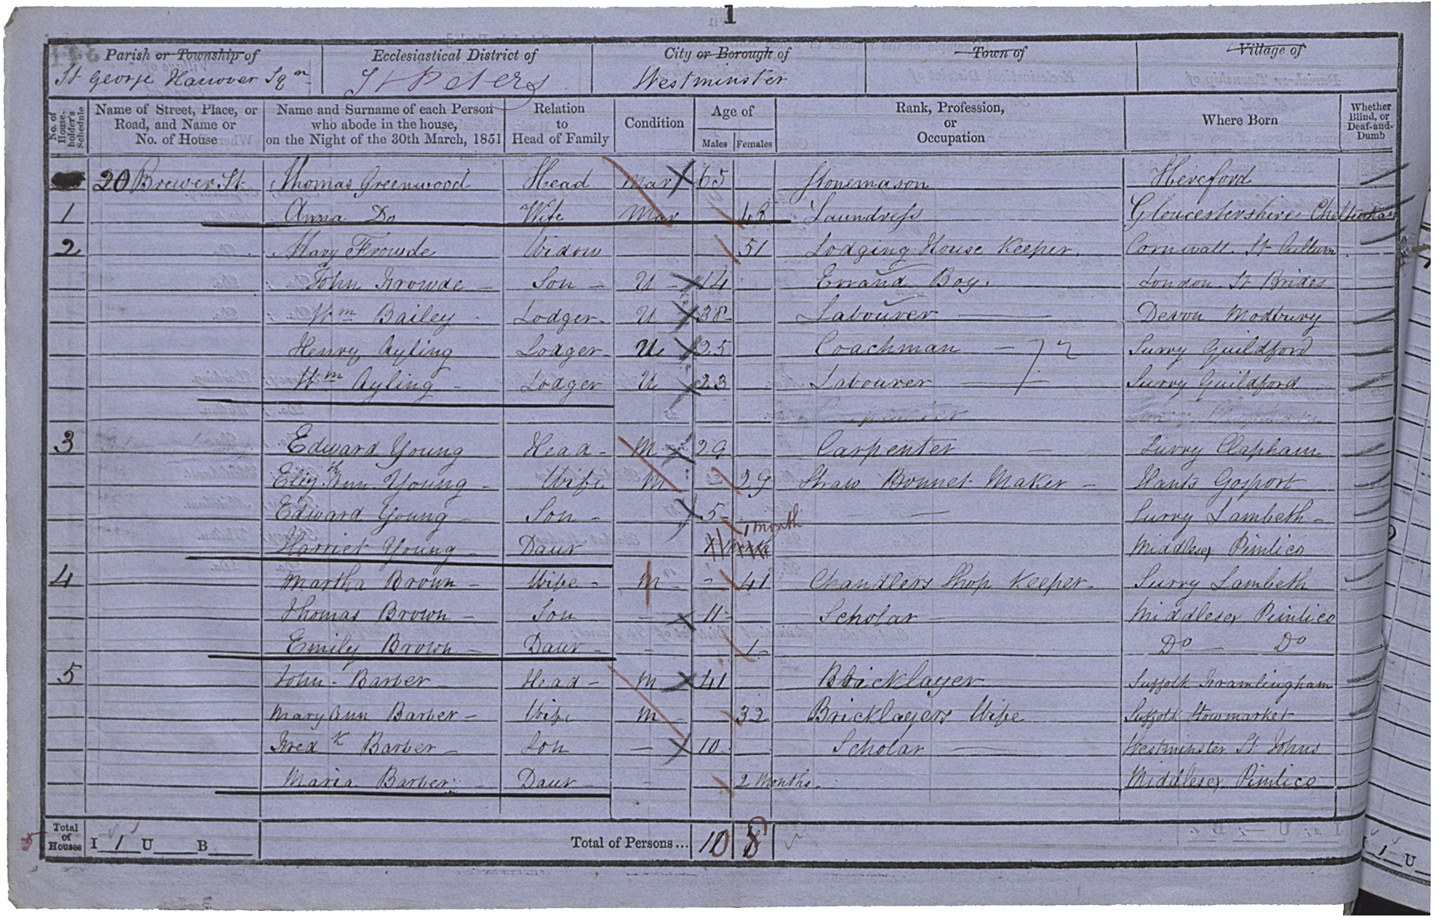 1
Parish or Township of Ecclesiastical District of City or Borough of Town of Village of
St George Hanover Sqre St Peters Westminster
No. of House-holder's Schedule Name of Street, Place, or Road, and Name or No. of House Name and Surname of each Person who abode in the house, on the Night of the 30th March, 1851 Relation to Head of Family Condition Age of Males Females Rank, Profession, or Occupation Where Born Whether Blind, or Deaf-and-Dumb
20 Brewer St Thomas Greenwood Head Mar 65 Stonemason Hereford
1 Anna Do Wife Mar 48 Laundress Gloucestershire Cheltenham
2 Mary Frowde Widow 51 Lodging House Keeper Cornwall St
John Frowde Son U 14 Errand Boy London St Brides
Wm Bailey Lodger U 38 Labourer Devon Modbury
Henry Ayling Lodger U 25 Coachman Surry Guildford
Wm Ayling Lodger U 23 Labourer Surry Guildford
3 Edward Young Head M 29 Carpenter Surry Clapham
Elizth Ann Young Wife M 29 Straw Bonnet Maker Hants Gosport
Edward Young Son 5 Surry Lambeth
Harriet Young Daur 1 month Middlesex Pimlico
4 Martha Brown Wife M 41 Chandlers Shop Keeper Surry Lambeth
Thomas Brown Son 11 Scholar Middlesex Pimlico
Emily Brown Daur 1 Do Do
5 John Barber Head M 41 Bricklayer Suffolk Framlingham
Mary Ann Barber Wife M 32 Bricklayers Wife Suffolk Stowmarket
Fredk Barber Son 10 Scholar Westminster St Johns
Maria Barber Daur 2 Months Middlesex Pimlico
Total of Houses I 1 U B Total of Persons... 10 8
1 U